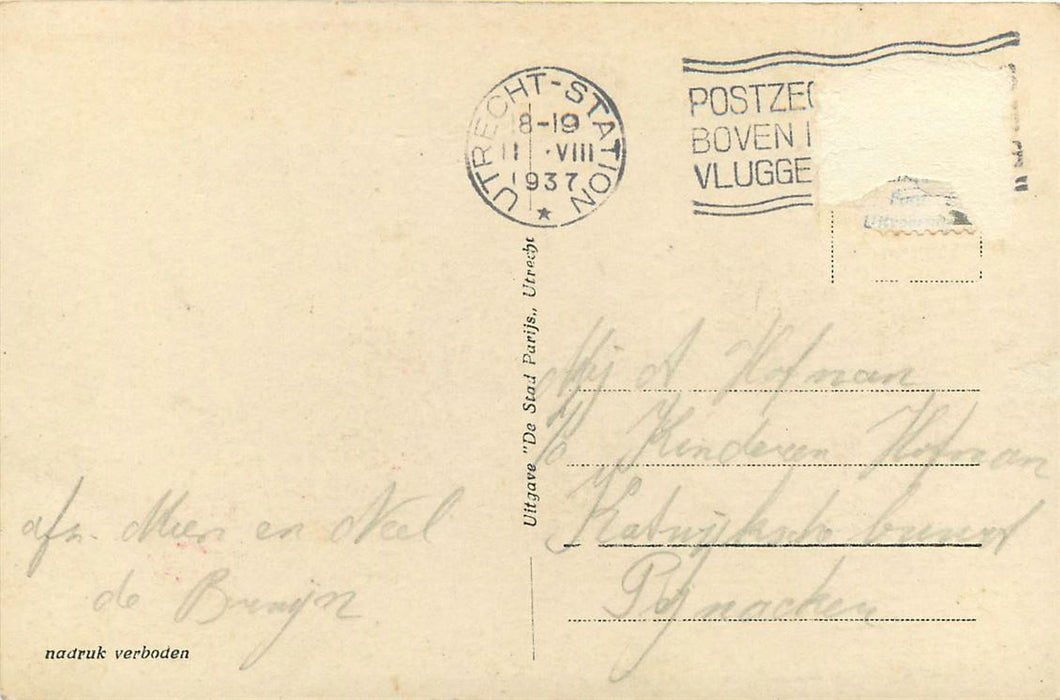 UTRECHT-STATION
18-19
11 ·VIII
1937
POSTZEG
BOVEN
VLUGGE
Uitgave "De Stad Parijs", Utrecht
A Hofman
Kinderen Hofman
Pijnacker
afz. Mien en Neel
de Bruijn
nadruk verboden